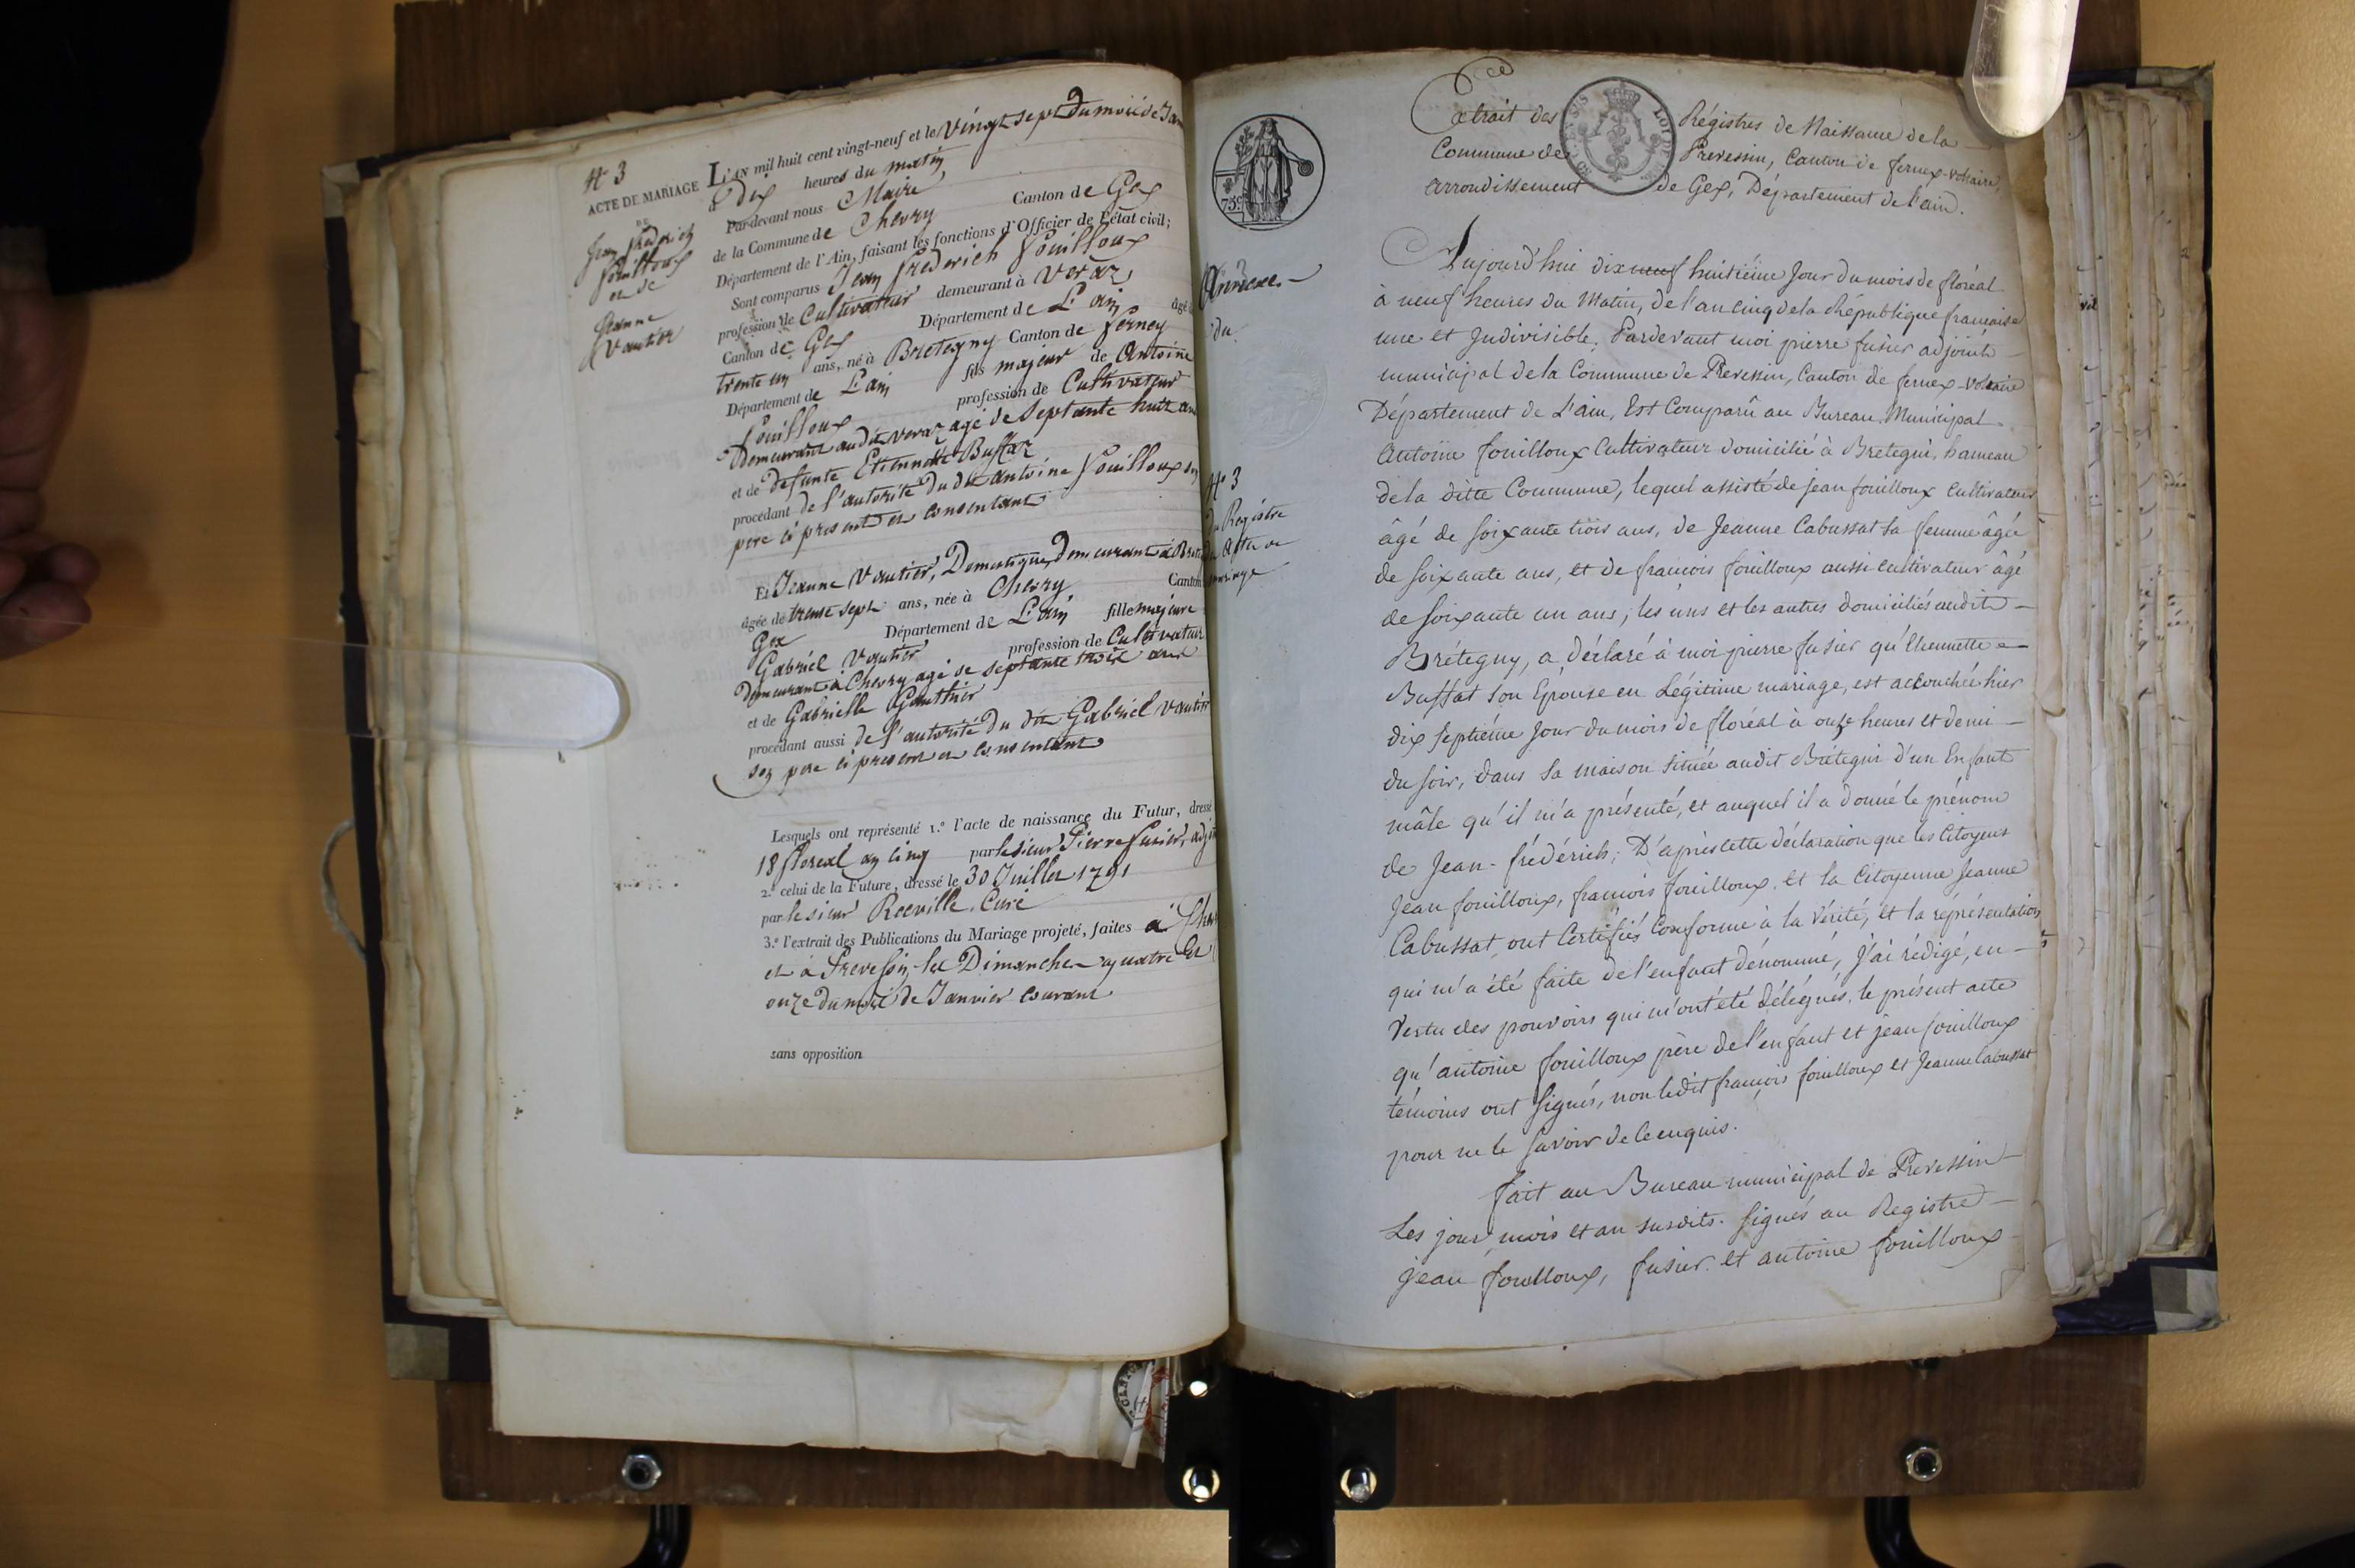 N° 3
ACTE DE MARIAGE
DE
Jean frederich
fouilloux
et de
Jeanne
Vautier
L'AN mil huit cent vingt-neuf et le Vingt sept du mois de Jan
à Dix heures du matin
Par-devant nous Maire
de la Commune de Chevry Canton de Gex
Département de l'Ain, faisant les fonctions d'Officier de l'état civil;
Sont comparus Jean frederich fouilloux
profession de Cultivateur demeurant à Veraz,
Canton de Gex Département de L'ain âgé
trente un ans, né à Bretegny Canton de ferney
Département de L'ain fils majeur de Antoine
fouilloux profession de Cultivateur
Demeurant audit veraz agé de Septante huit an
et de defunte Etiennette Buffaz
procédant de l'autorité du dit antoine fouilloux son
pere ci present et consentant
Et Jeanne Vautier, Domestique, Demeurant à Breteg
âgée de trente sept ans, née à Chevry Canton
Gex Département de L'ain fille majeure
Gabriel Vautier profession de Cultivateur
demeurant à Chevry agé de septante trois ans
et de Gabrielle Gauthier
procédant aussi de l'autorité du dit Gabriel Vautier
son pere ci present et consentant
Lesquels ont représenté 1.° l'acte de naissance du Futur, dressé
18 floreal an cinq par le sieur Pierre fusier, adjoi
2.° celui de la Future, dressé le 30 Juillet 1791
par le sieur Curé
3.° l'extrait des Publications du Mariage projeté, faites à Chev
et à Prevessin les Dimanches quatre et
onze du mois de Janvier courant
sans opposition
75c
Annexe
du
N° 3
du Régistre
mariage
Extrait des Régistres de Naissance de la
Commune de Prevessin, Canton de fernex-voltaire,
arrondissement de Gex, Département de l'ain.
Aujourd'hui dix neuf huitiéme Jour du mois de floréal
à neuf heures du Matin, de l'an cinq de la République française
une et Indivisible. Pardevant moi pierre fusier adjoint
municipal de la Commune de Prevessin, Canton de fernex-voltaire
Département de L'ain, Est Comparû au Bureau Municipal
Antoine fouilloux Cultivateur domicilié à Bretegni, hameau
de la ditte Commune, lequel assisté de jean fouilloux cultivateur
âgé de soixante trois ans, de Jeanne Cabussat sa femme âgée
de soixante ans, et de francois fouilloux aussi cultivateur âgé
de soixante un ans; les uns et les autres domiciliés audit
Brétegny, a déclaré à moi pierre fusier qu'Etiennette
Buffat son Epouse en Légitime mariage, est accouchée hier
dix septiéme Jour du mois de floréal à onze heures et demi
du soir, dans sa maison située audit Brétegni d'un Enfant
mâle qu'il m'a présenté, et auquel il a donné le prénom
de Jean-frédérich; D'après cette déclaration que les Citoyens
Jean fouilloux, francois fouilloux, et la Citoyenne Jeanne
Cabussat, ont Certifiés Conforme à la vérité, et la réprésentation
qui m'a été faite de l'enfant dénommé, J'ai rédigé, en
Vertu des pouvoirs qui m'ont été délégués, le présent acte
qu'antoine fouilloux père de l'enfant et jean fouilloux
témoins ont signés, non ledit françois fouilloux et Jeanne Cabussat
pour ne le savoir de ce enquis.
fait au Bureau municipal de Prevessin
Les jour, mois et an susdits. signés au Registre
Jean fouilloux, fusier. et antoine fouilloux